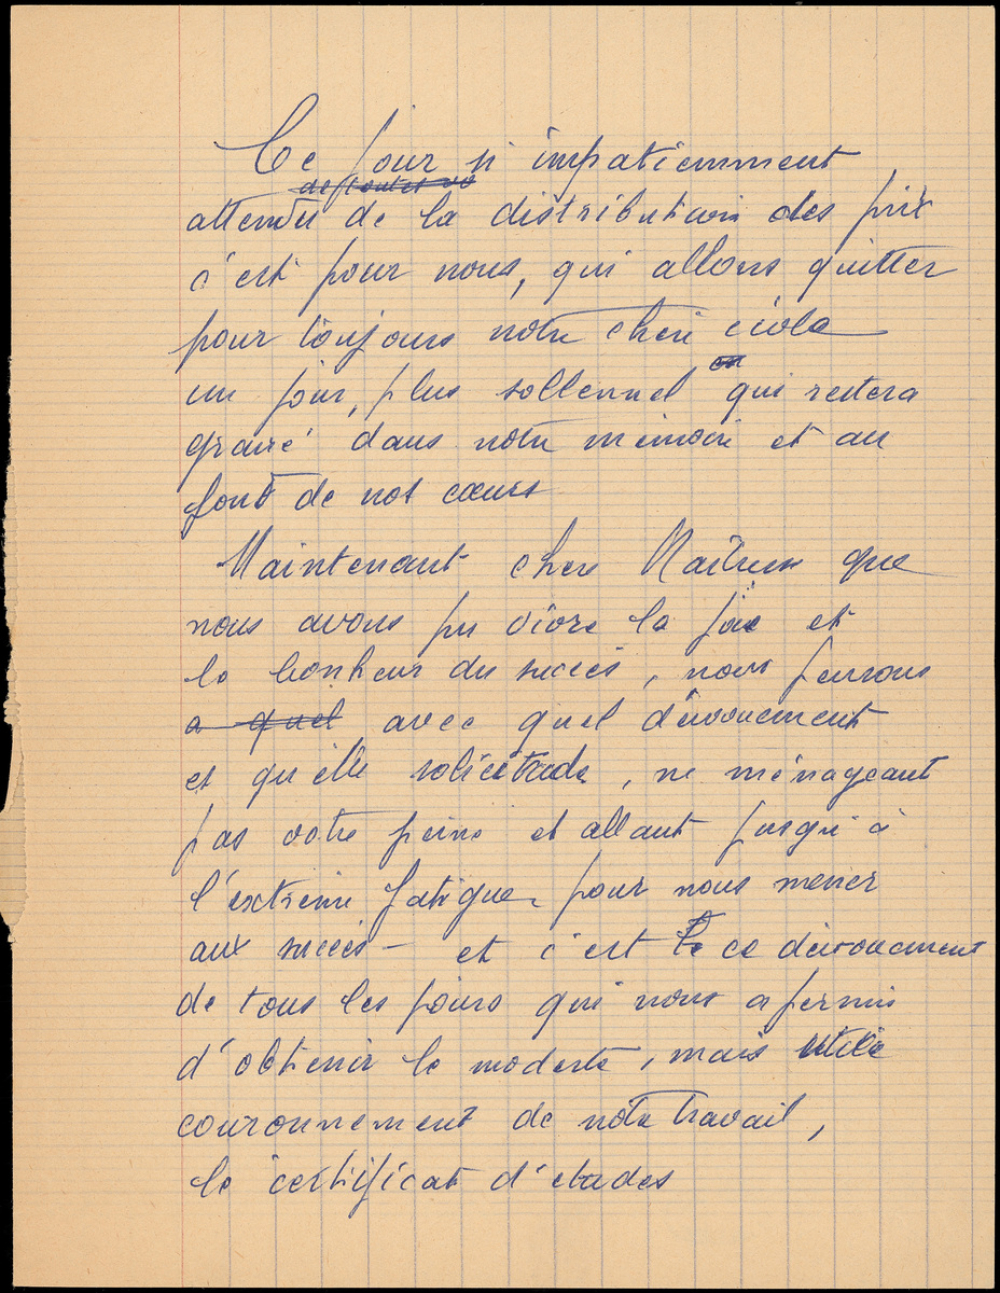 Ce jour si impatiemment
attendu de la distribution des prix
c'est pour nous, qui allons quitter
pour toujours notre chere école
un jour, plus sollennel qui restera
gravé dans notre mémoire et au
fond de nos cœurs
Maintenant chers Maîtres que
nous avons pu vivre la joie et
le bonheur du succès, nous pensons
a quel avec quel dévouement
et qu'elle solicitude, ne ménageant
pas votre peine et allant jusqu'à
l'extreme fatigue pour nous mener
aux succès - et c'est ce dévouement
de tous les jours qui nous a permis
d'obtenir le modeste, mais utile
couronnement de notre travail,
le certificat d'etudes